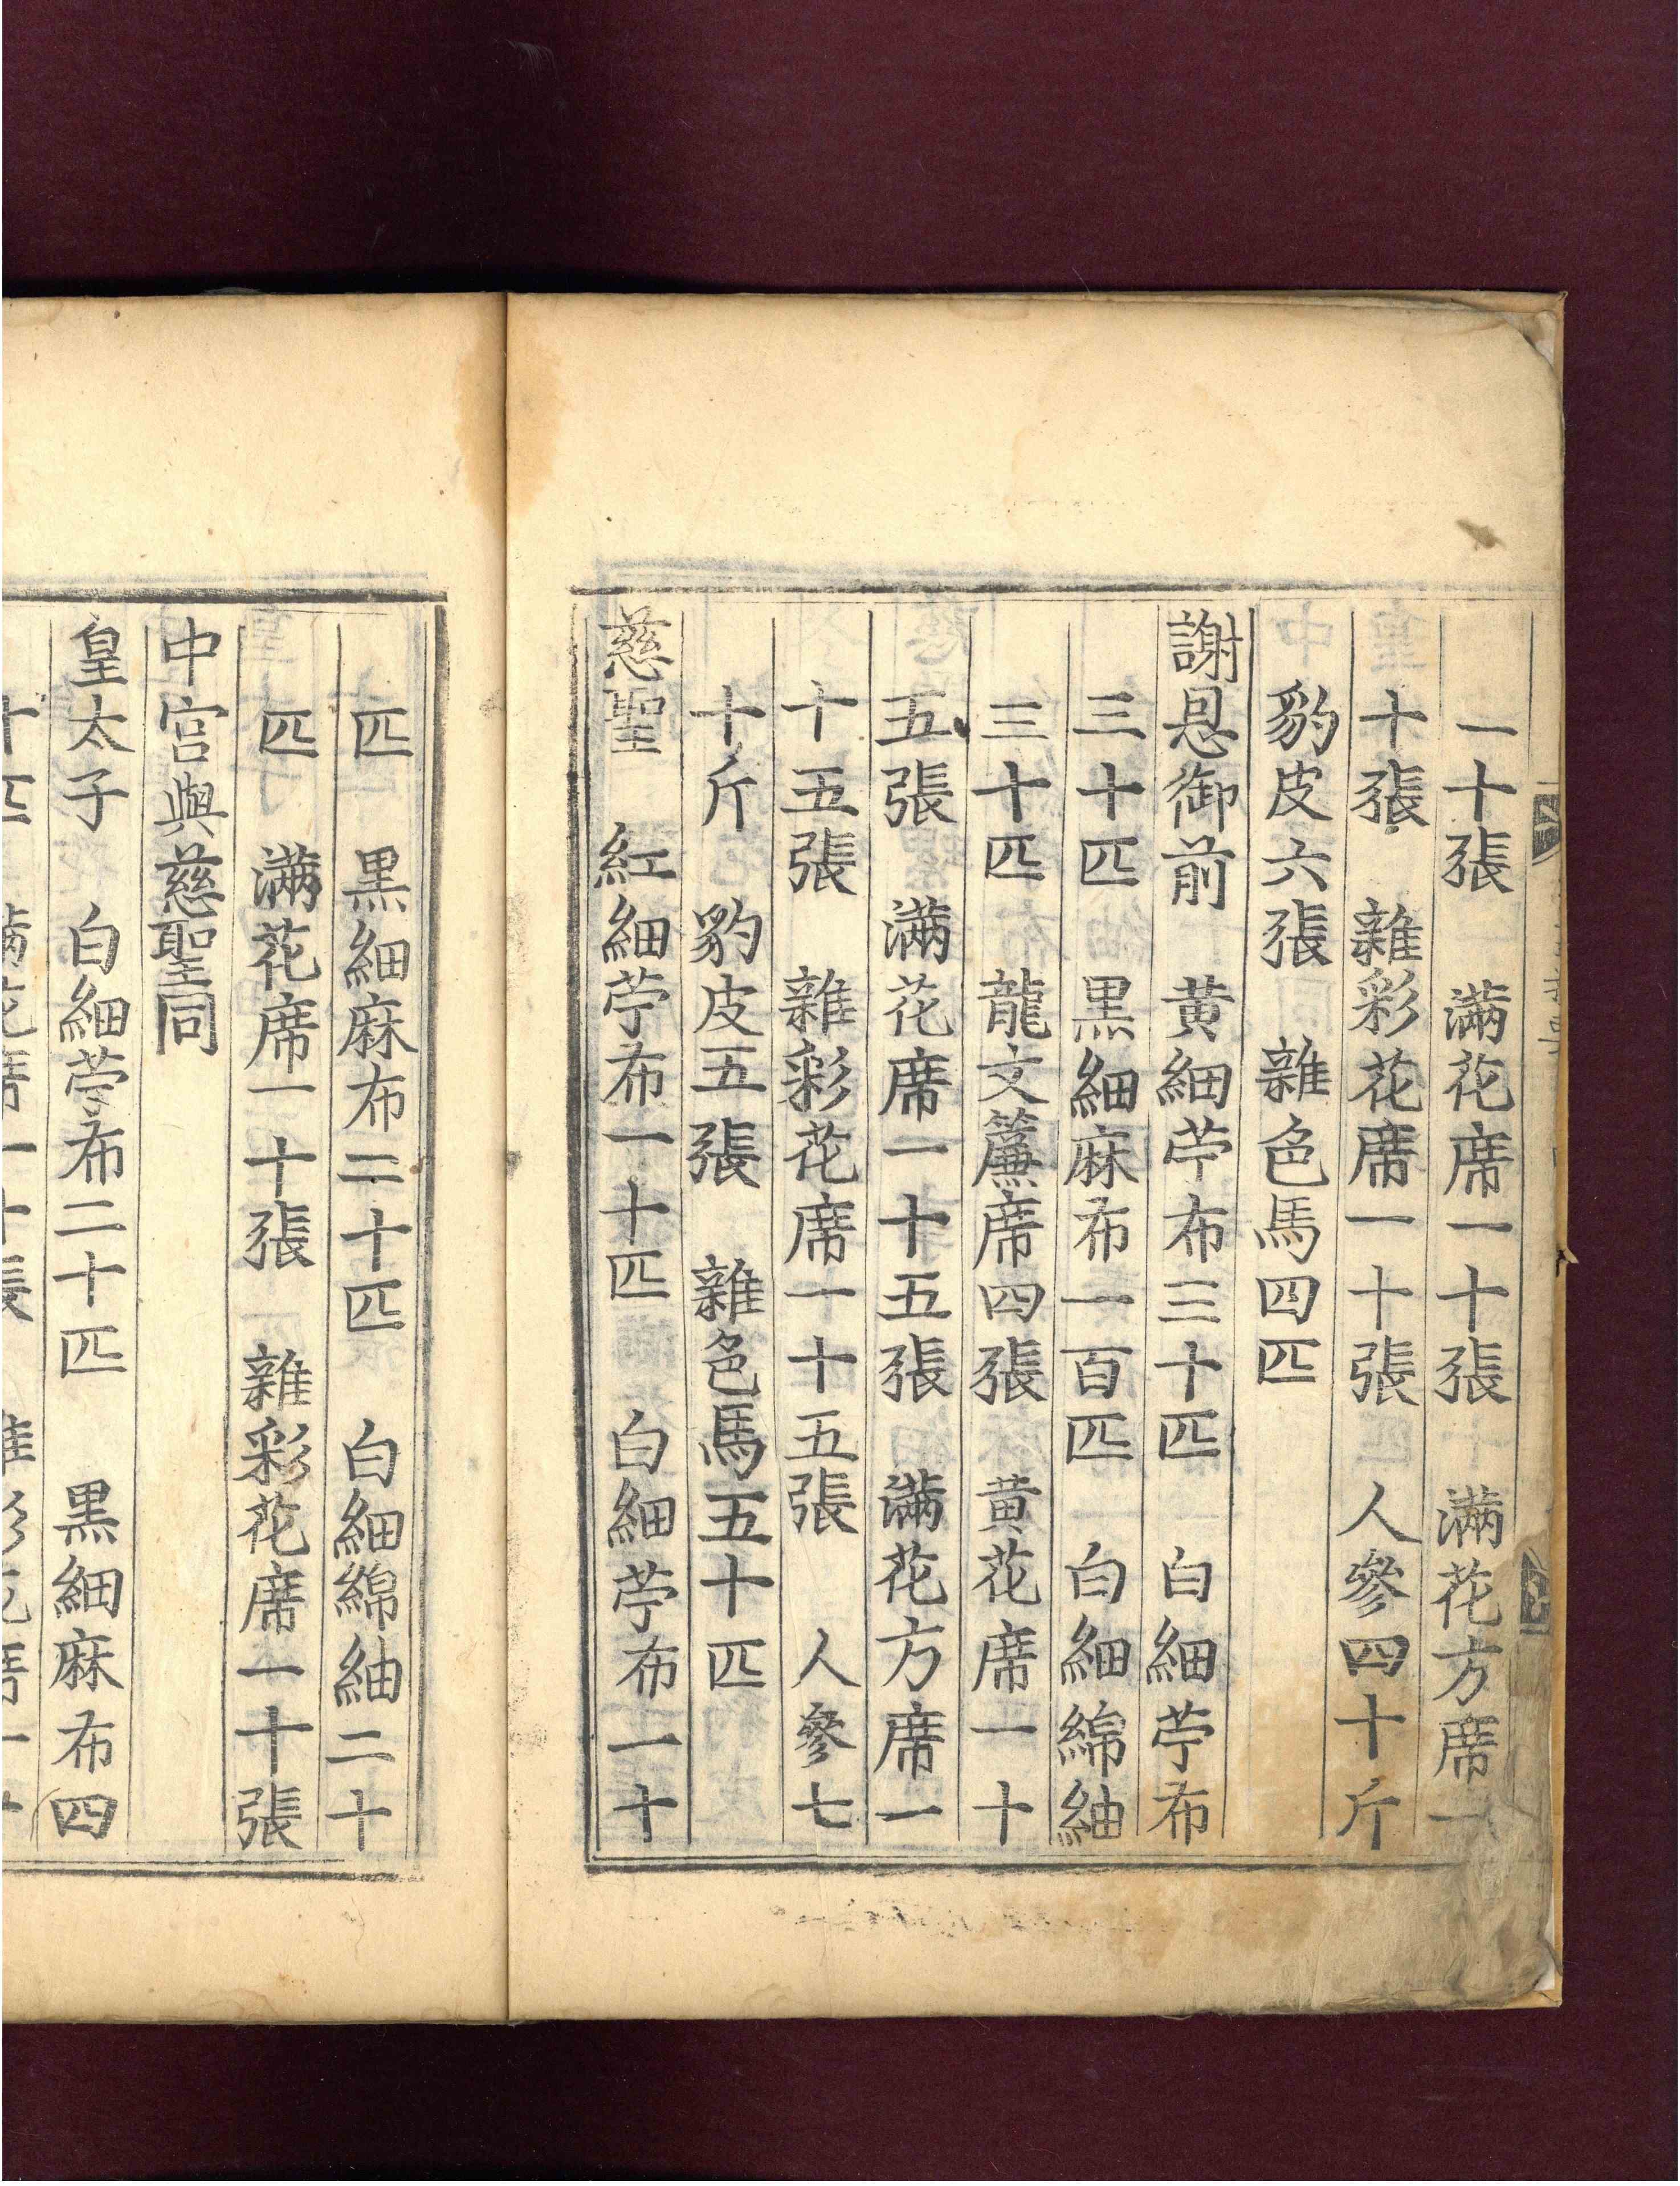 一十張 滿花席一十張 滿花方席一
十張 雜彩花席一十張 人參四十斤
豹皮六張 雜色馬四匹
謝恩御前 黃細苧布三十匹 白細苧布
三十匹 黑細麻布一百匹 白細綿紬
三十匹 龍文簾席四張 黃花席一十
五張 滿花席一十五張 滿花方席一
十五張 雜彩花席一十五張 人參七
十斤 豹皮五張 雜色馬五十匹
慈聖 紅細苧布一十匹 白細苧布一十
匹 黑細麻布二十匹 白細綿紬二十
匹 滿花席一十張 雜彩花席一十張
中宮與慈聖同
皇太子 白細苧布二十匹 黑細麻布四